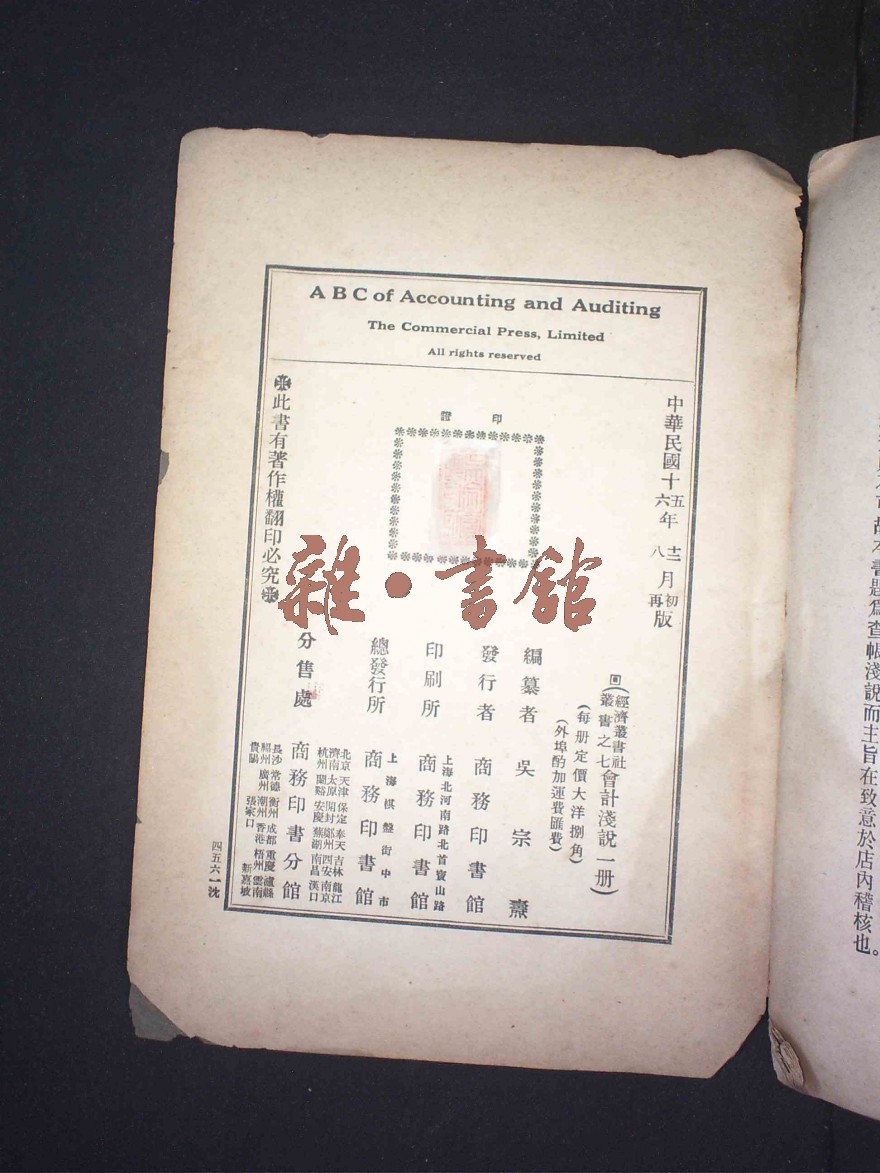 A B C of Accounting and Auditing
The Commercial Press, Limited
All rights reserved
中華民國十五年十二月初版
六年八月再版
經濟叢書社
叢書之七
(會計淺說一册)
(每册定價大洋捌角)
(外埠酌加運費匯費)
編纂者 吳宗燾
發行者 商務印書館
上海北河南路北首寶山路
印刷所 商務印書館
上海棋盤街中市
總發行所 商務印書館
北京 天津 保定 奉天 吉林 龍江
濟南 太原 開封 鄭州 西安 南京
杭州 蘭谿 安慶 蕪湖 南昌 漢口
分售處 商務印書分館
長沙 常德 衡州 成都 重慶 瀘縣
福州 廣州 潮州 香港 梧州 雲南
貴陽 張家口 新嘉坡
印證
此書有著作權翻印必究
四五六一沈
雜·書館
本書題為查帳淺說而主旨在致意於店內稽核也。